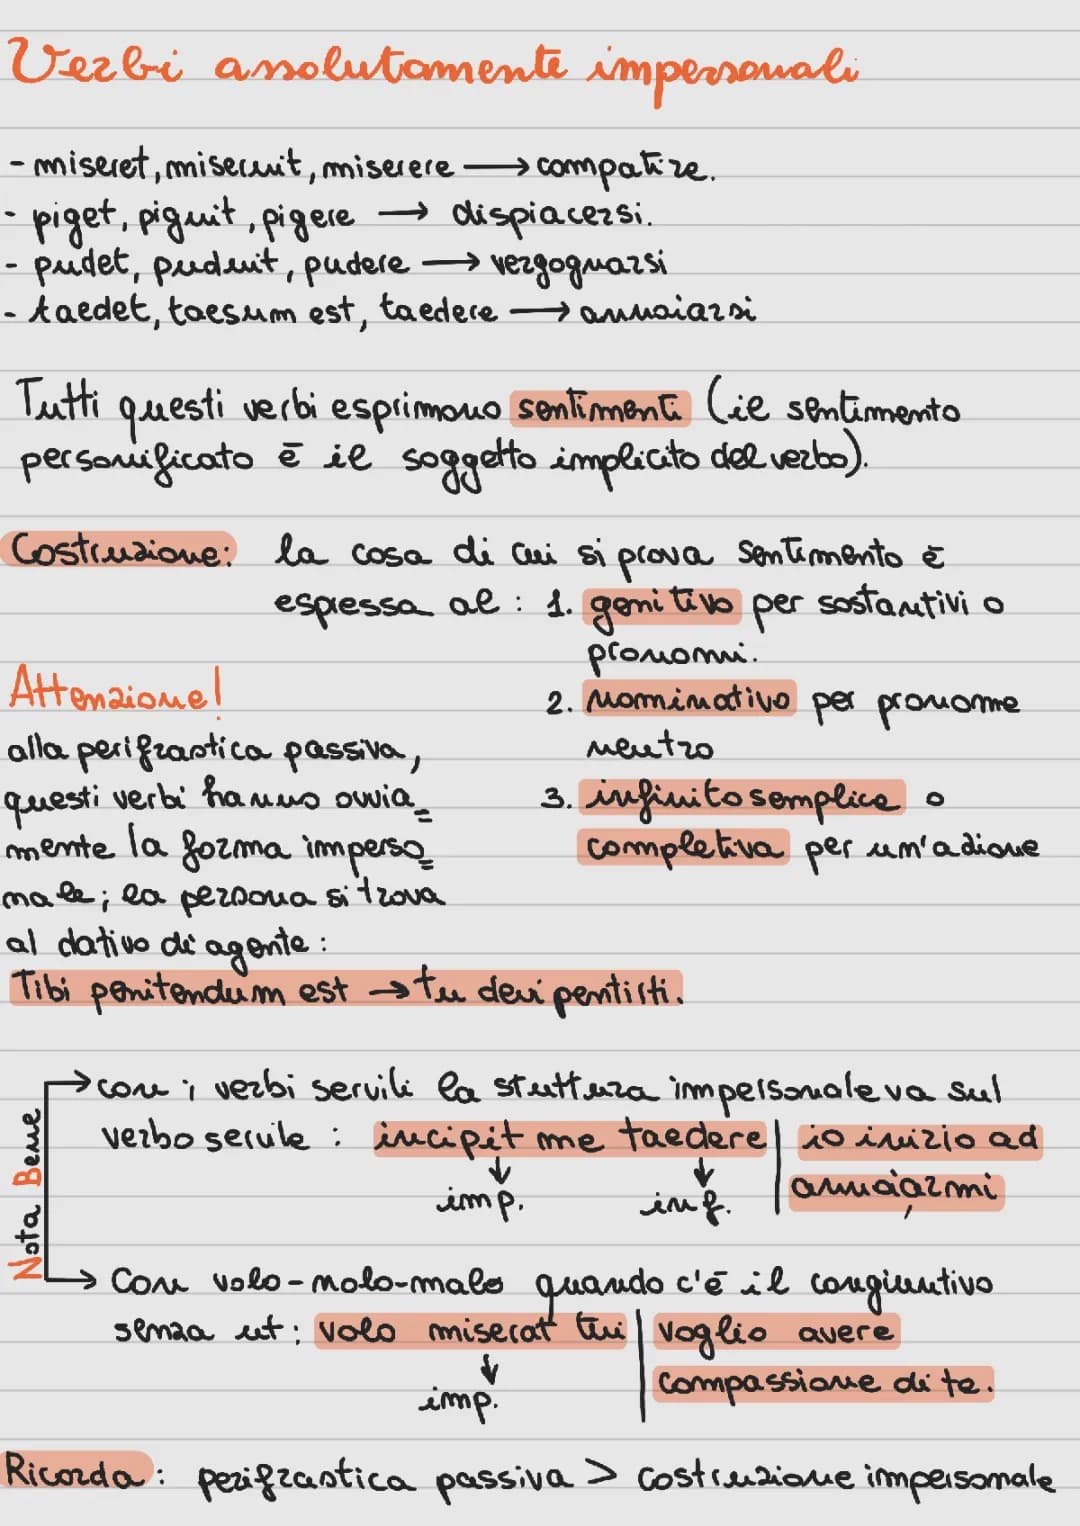 Verbi assolutamente impersonali
- miseret, miseruit, miserere → compatire.
- piget, piguit, pigere → dispiacersi.
- pudet, puduit, pudere → vergognarsi
- taedet, taesum est, taedere → annoiarsi
Tutti questi verbi esprimono sentimenti (il sentimento
personificato è il soggetto implicito del verbo).
Costruzione: la cosa di cui si prova sentimento è
espressa al: 1. genitivo per sostantivi o
pronomi.
2. nominativo per pronome
neutro
3. infinito semplice o
completiva per un'azione
Attenzione!
alla perifrastica passiva,
questi verbi hanno ovvia=
mente la forma imperso=
nale; la persona si trova
al dativo di agente:
Tibi penitendum est → tu devi pentirti.
Nota Bene
→ con i verbi servili la struttura impersonale va sul
verbo servile: incipit me taedere | io inizio ad
annoiarmi
↓ imp. ↓ inf.
→ Con volo-nolo-malo quando c'è il congiuntivo
senza ut: volo miserat tui | voglio avere
compassione di te.
↓ imp.
Ricorda: perifrastica passiva > costruzione impersonale